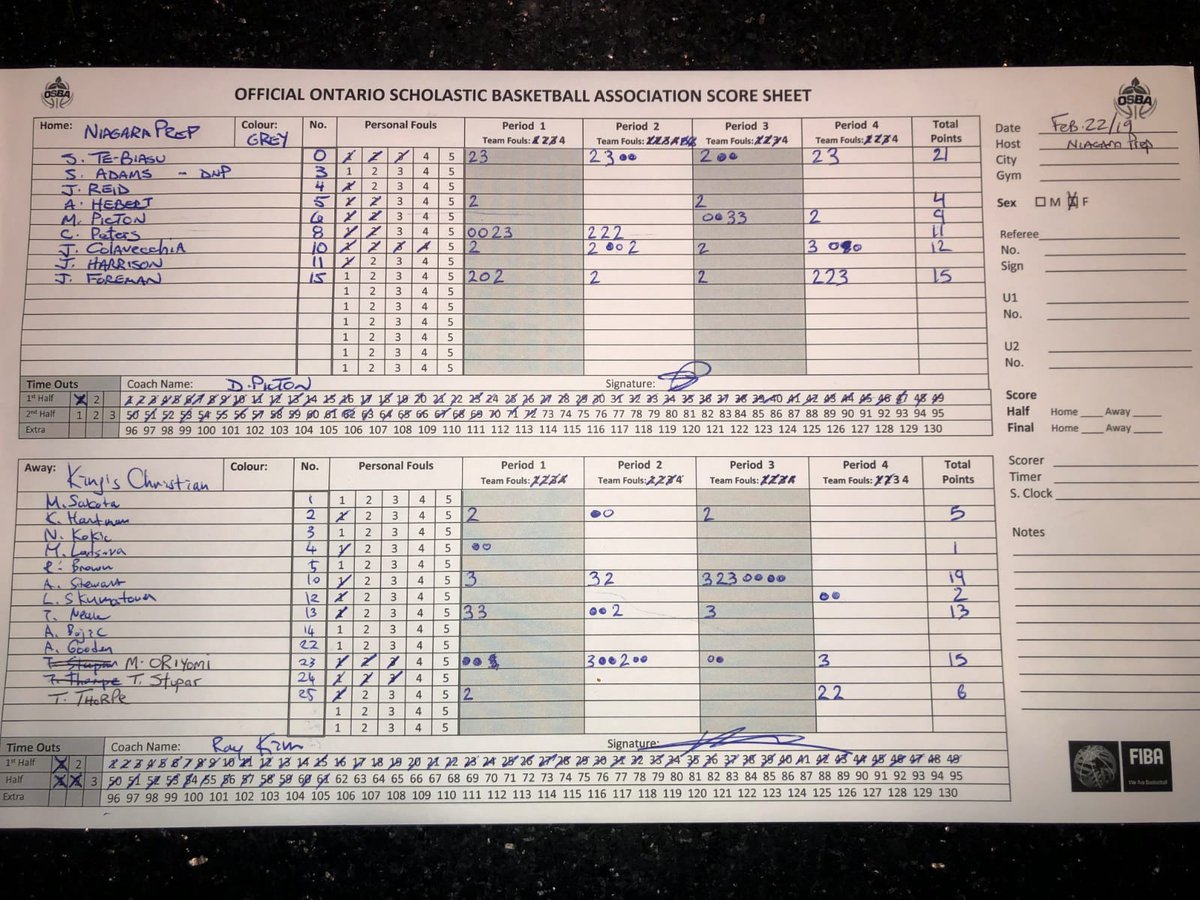 OFFICIAL ONTARIO SCHOLASTIC BASKETBALL ASSOCIATION SCORE SHEET
OSBA
OSBA
Home: NIAGARA PREP Colour: GREY No. Personal Fouls Period 1 Period 2 Period 3 Period 4 Total Points
Team Fouls: 1 2 3 4 Team Fouls: 1 2 3 4 Team Fouls: 1 2 3 4 Team Fouls: 1 2 3 4
S. TE-BIASU 0 1 2 3 4 5 23 23 2 23 21
S. ADAMS - DNP 3 1 2 3 4 5
J. REID 4 1 2 3 4 5
A. HEBERT 5 1 2 3 4 5 2 2 4
M. PICTON 6 1 2 3 4 5 33 2 9
C. Peters 8 1 2 3 4 5 0023 222 11
J. COLAVECCHIA 10 1 2 3 4 5 2 2 2 2 3 12
J. HARRISON 11 1 2 3 4 5
J. FOREMAN 15 1 2 3 4 5 202 2 2 223 15
1 2 3 4 5
1 2 3 4 5
1 2 3 4 5
1 2 3 4 5
1 2 3 4 5
1 2 3 4 5
Time Outs Coach Name: D. PICTON Signature:
1st Half 1 2 1 2 3 4 5 6 7 8 9 10 11 12 13 14 15 16 17 18 19 20 21 22 23 24 25 26 27 28 29 30 31 32 33 34 35 36 37 38 39 40 41 42 43 44 45 46 47 48 49
2nd Half 1 2 3 50 51 52 53 54 55 56 57 58 59 60 61 62 63 64 65 66 67 68 69 70 71 72 73 74 75 76 77 78 79 80 81 82 83 84 85 86 87 88 89 90 91 92 93 94 95
Extra 96 97 98 99 100 101 102 103 104 105 106 107 108 109 110 111 112 113 114 115 116 117 118 119 120 121 122 123 124 125 126 127 128 129 130
Away: King's Christian Colour: No. Personal Fouls Period 1 Period 2 Period 3 Period 4 Total Points
Team Fouls: 1 2 3 4 Team Fouls: 1 2 3 4 Team Fouls: 1 2 3 4 Team Fouls: 1 2 3 4
M. Sakota 1 1 2 3 4 5
K. Hartman 2 1 2 3 4 5 2 2 5
N. Kokic 3 1 2 3 4 5
M. 4 1 2 3 4 5 1
Brown 5 1 2 3 4 5
A. Stewart 10 1 2 3 4 5 3 32 323 19
L. 12 1 2 3 4 5 2
13 1 2 3 4 5 33 2 3 13
A. 14 1 2 3 4 5
A. Gooden 22 1 2 3 4 5
T. Stupar M. ORIYOMI 23 1 2 3 4 5 3 2 3 15
T. Thorpe T. Stupar 24 1 2 3 4 5
T. THORPE 25 1 2 3 4 5 2 22 6
1 2 3 4 5
1 2 3 4 5
Time Outs Coach Name: Ray Signature:
1st Half 1 2 1 2 3 4 5 6 7 8 9 10 11 12 13 14 15 16 17 18 19 20 21 22 23 24 25 26 27 28 29 30 31 32 33 34 35 36 37 38 39 40 41 42 43 44 45 46 47 48 49
Half 1 2 3 50 51 52 53 54 55 56 57 58 59 60 61 62 63 64 65 66 67 68 69 70 71 72 73 74 75 76 77 78 79 80 81 82 83 84 85 86 87 88 89 90 91 92 93 94 95
Extra 96 97 98 99 100 101 102 103 104 105 106 107 108 109 110 111 112 113 114 115 116 117 118 119 120 121 122 123 124 125 126 127 128 129 130
Date FEB. 22/19
Host NIAGARA Prep
City
Gym
Sex M F
Referee
No.
Sign
U1
No.
U2
No.
Score
Half Home Away
Final Home Away
Scorer
Timer
S. Clock
Notes
FIBA
We Are Basketball